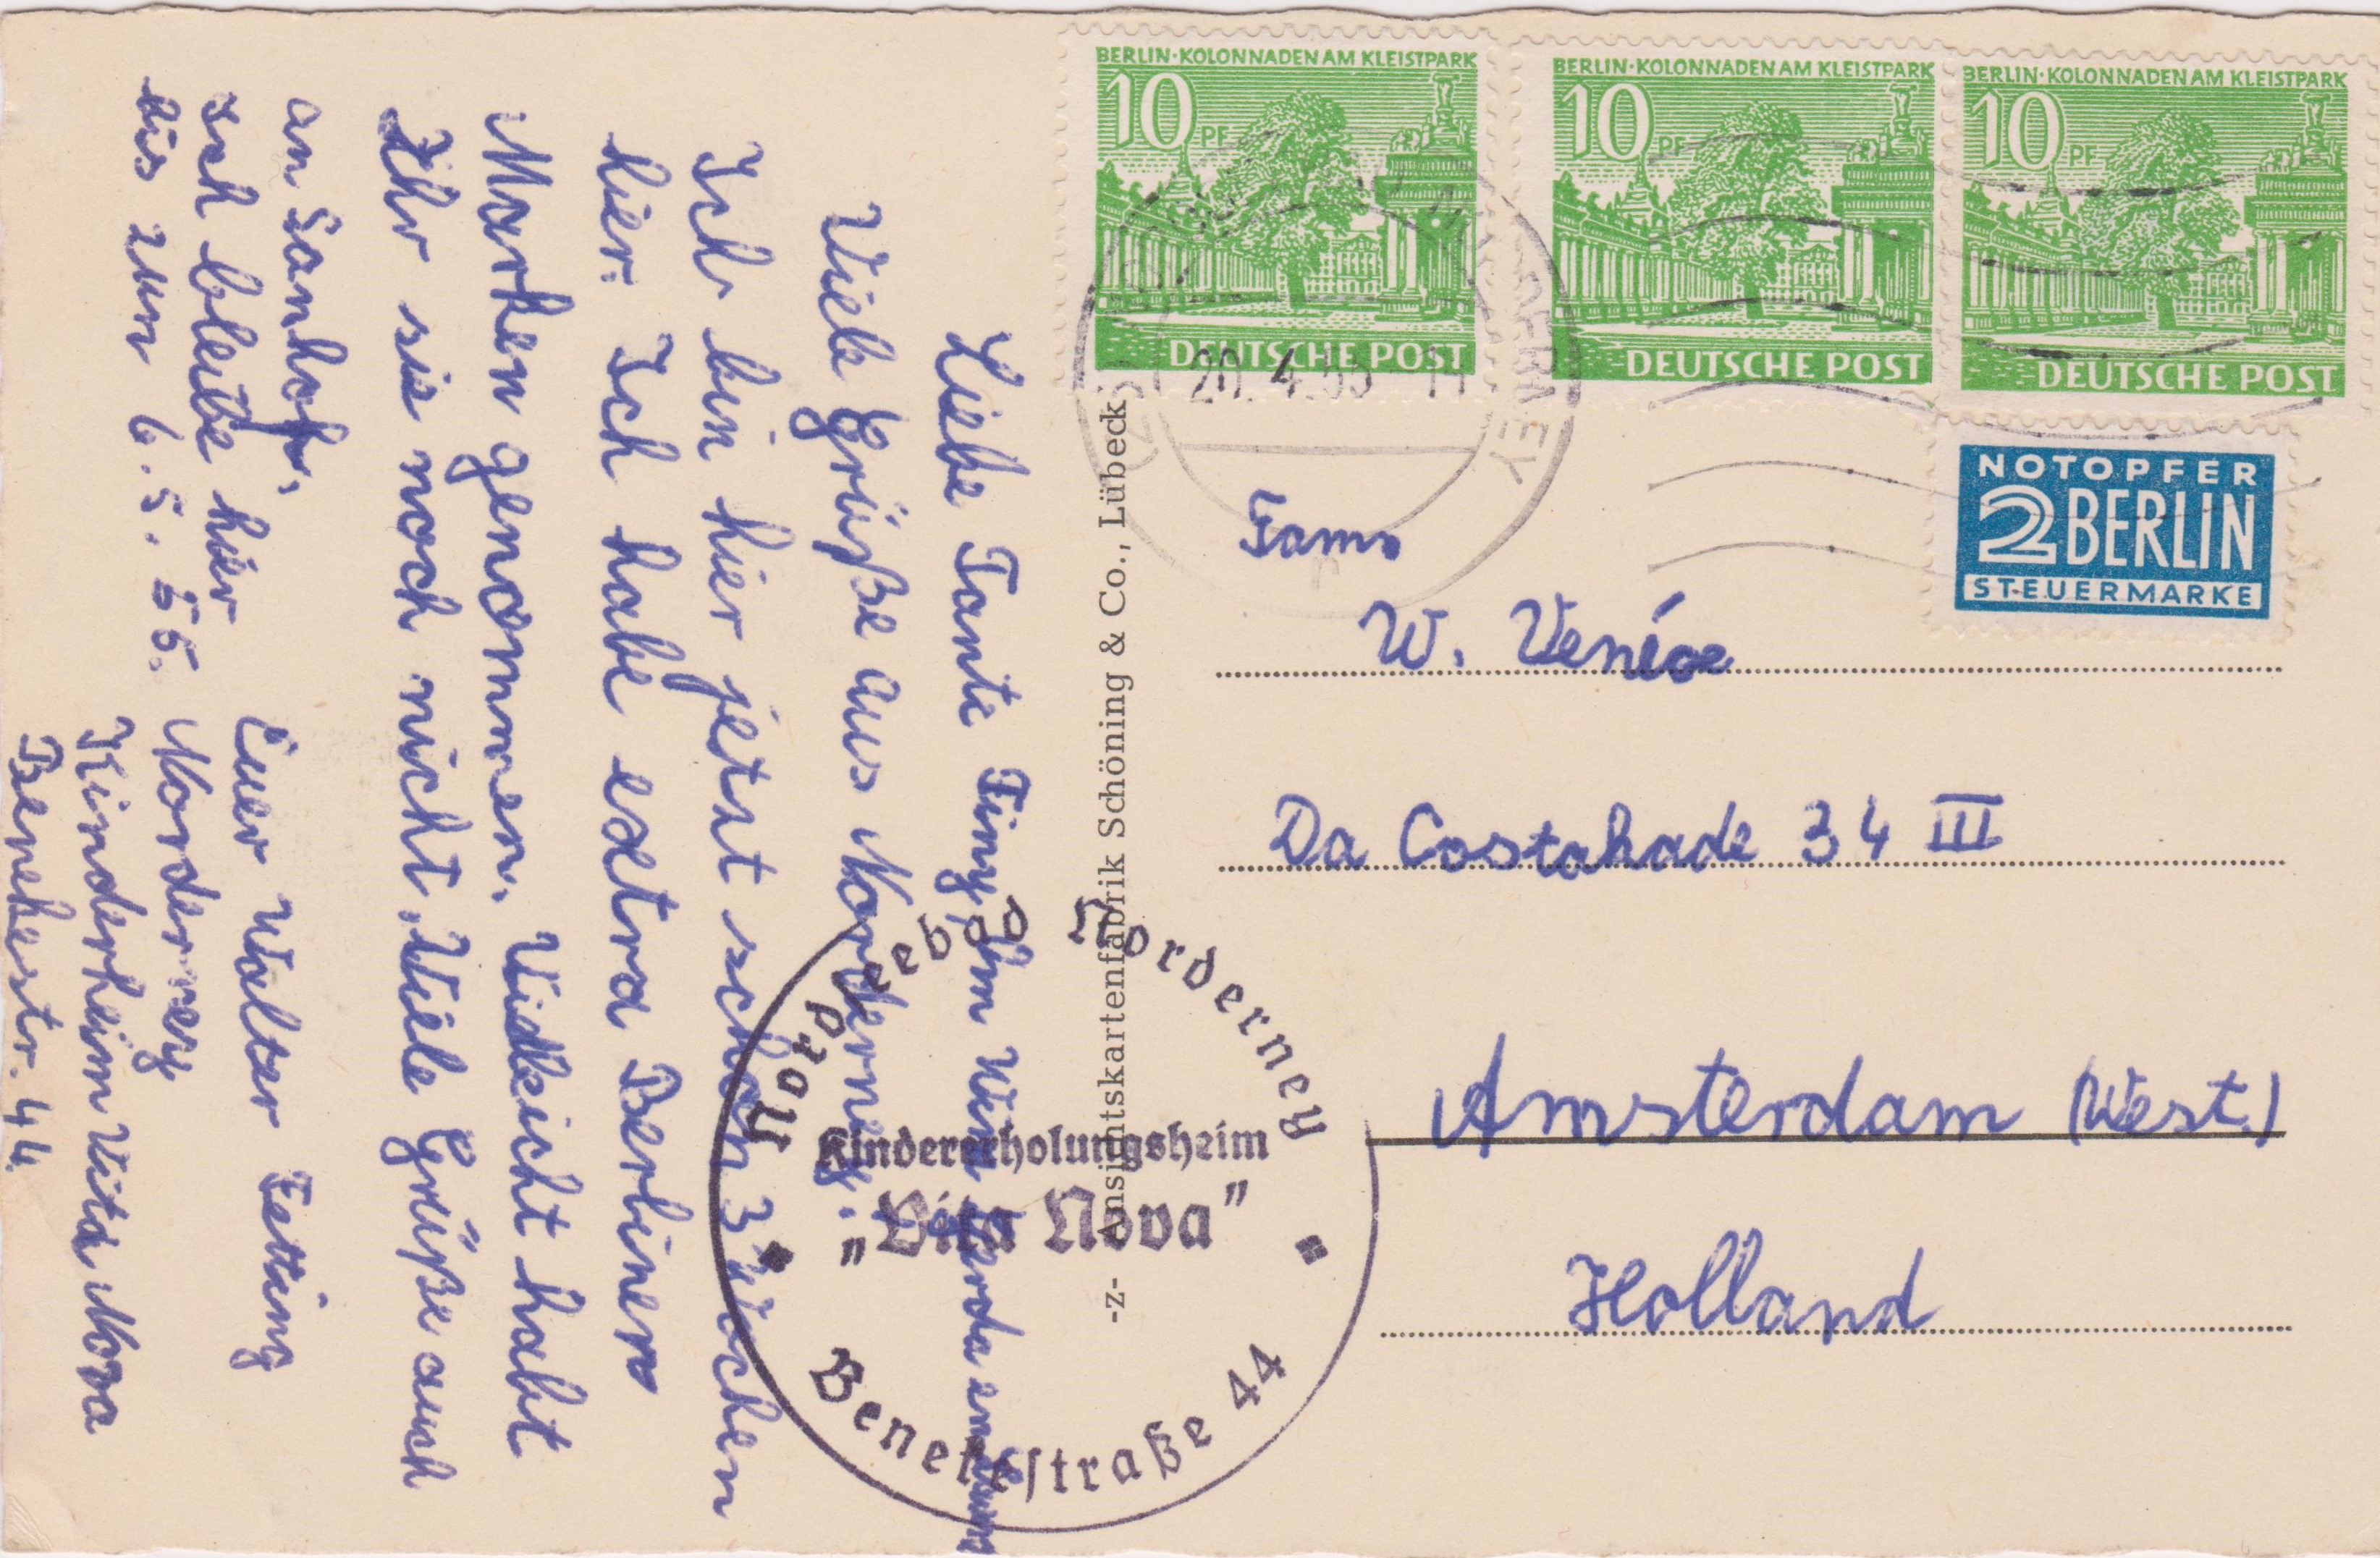 Liebe Tante Tiny, Om Wim Gerda en
Viele Grüße aus Norderney.
Ich bin hier jetzt schon 3 Wochen
hier. Ich habe extra Berliner
Marken genommen. Vielleicht habt
Ihr sie noch nicht. Viele Grüße auch
an
Ich bleibe hier
bis zum 6.5.55.
Euer Walter Tetting
Norderney
Kinderheim Vita Nova
Benekestr. 44.
-z- Ansichtskartenfabrik Schöning & Co., Lübeck
Nordseebad Norderney
Kindererholungsheim
„Vita Nova”
Benekestraße 44
BERLIN·KOLONNADEN AM KLEISTPARK
10 PF
DEUTSCHE POST
BERLIN·KOLONNADEN AM KLEISTPARK
10 PF
DEUTSCHE POST
BERLIN·KOLONNADEN AM KLEISTPARK
10 PF
DEUTSCHE POST
20.4.55
NOTOPFER
2 BERLIN
STEUERMARKE
Fam.
W.
Da Costakade 34 III
Amsterdam (West.)
Holland